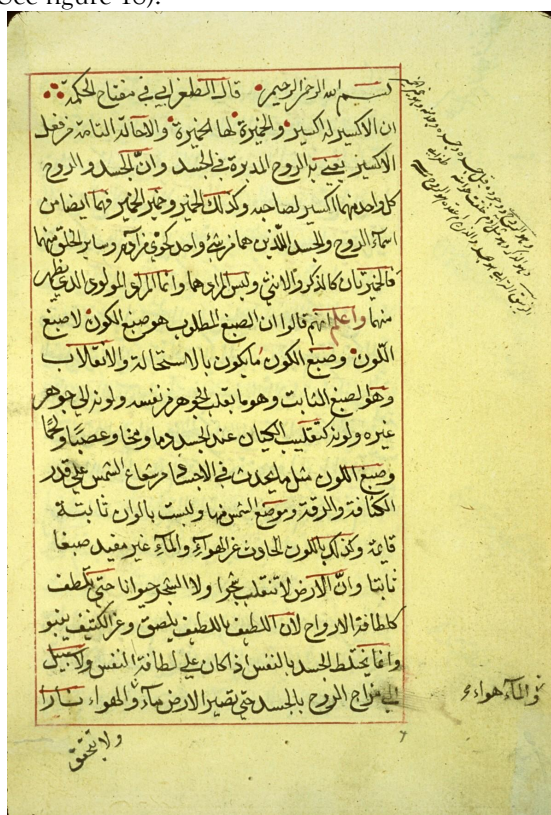 (See figure 18).
بسم الله الرحمن الرحيم قال الطغرايي في مفتاح الحكمة
ان الاكسير له اكسير والخميرة لها الخميرة والاحالة التامة من فعل
الاكسير يعني به الروح المدبرة في الجسد وان الجسد والروح
كل واحد منهما اكسير لصاحبه وكذلك الخمير وخمير الخمير فهما ايضا من
اسماء الروح والجسد اللذين هما من شيء واحد وساير الخلق منهما
فالخميرتان كالذكر والانثى وليس المراد هما وانما المراد المولود الذي يظهر
منهما واعلم انهم قالوا ان الصبغ المطلوب هو صبغ الكون لا صبغ
اللون وصبغ الكون ما يكون بالاستحالة والانقلاب
وهو الصبغ الثابت وهو ما يقلب الجوهر من نفسه ولونه الي جوهر
غيره ولونه كتقليب الكيان عند الجسد دما ومخا وعصبا ولحما
وصبغ اللون مثل ما يحدث في الاجسام من شعاع الشمس علي قدر
الكثافة والرقة وموضع الشمس منها وليست بالوان ثابتة
قايمة وكذلك باللون الحادث عن الهواء والماء غير مفيد صبغا
ثابتا وان الارض لا تنقلب شجرا ولا الشجر حيوانا حتي يلطف
كلطافة الارواح لان اللطيف باللطيف يلصق وعن الكثيف ينبو
وانما يختلط الجسد بالنفس اذا كان علي لطافة النفس ولا سبيل
الي مزاج الروح بالجسد حتي تصير الارض ماء والهواء نارا
والماء هواء
ولا يتحقق